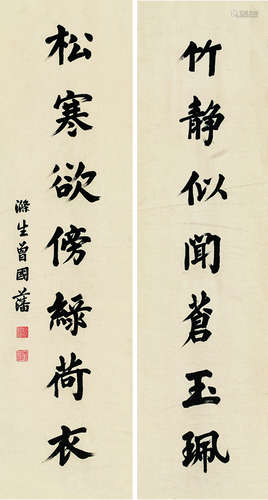 竹静似聞蒼玉珮
松寒欲傍綠荷衣
滌生曾國藩